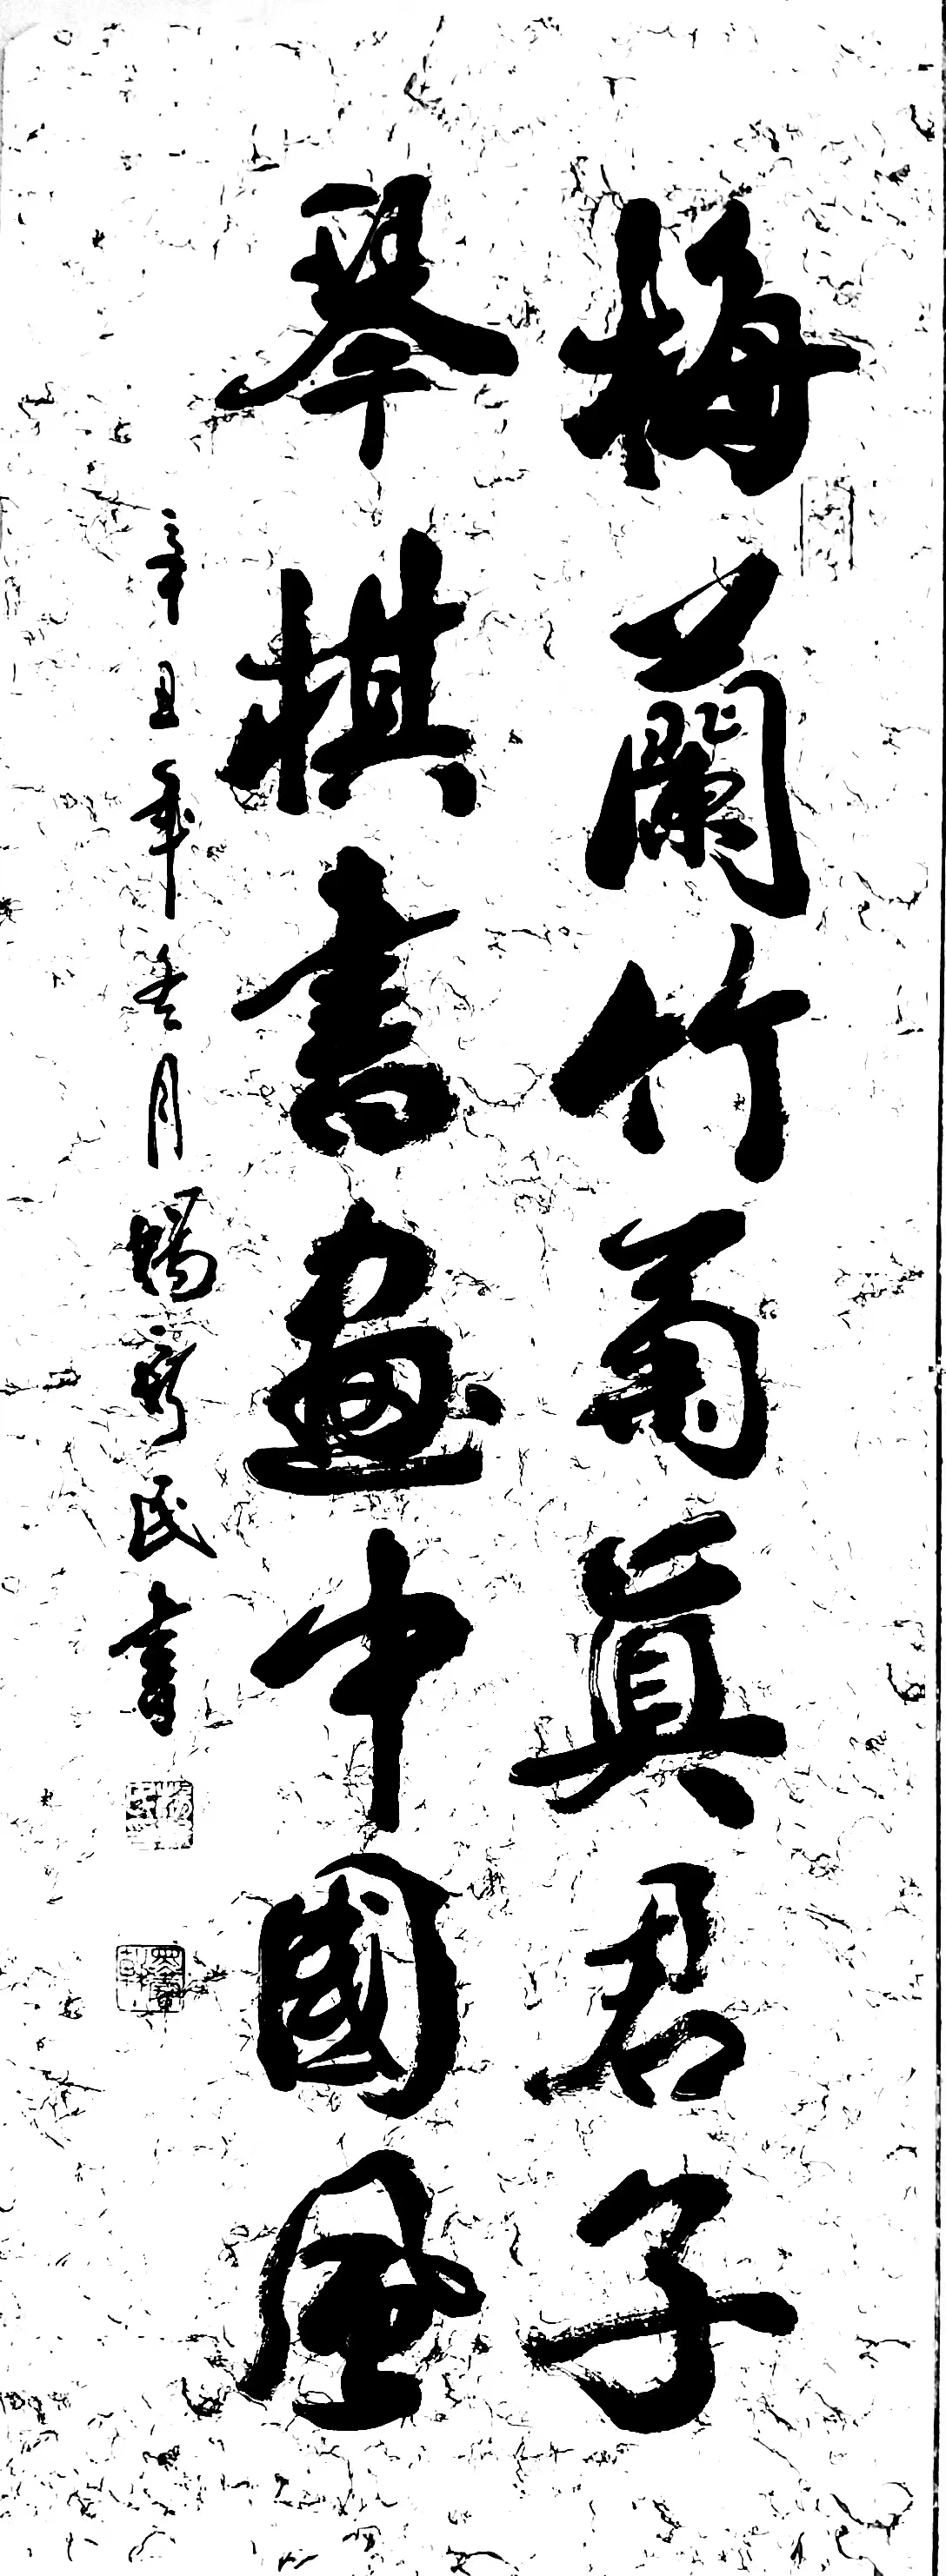 梅蘭竹菊真君子
琴棋書畫中國風
辛丑年冬月楊新民書